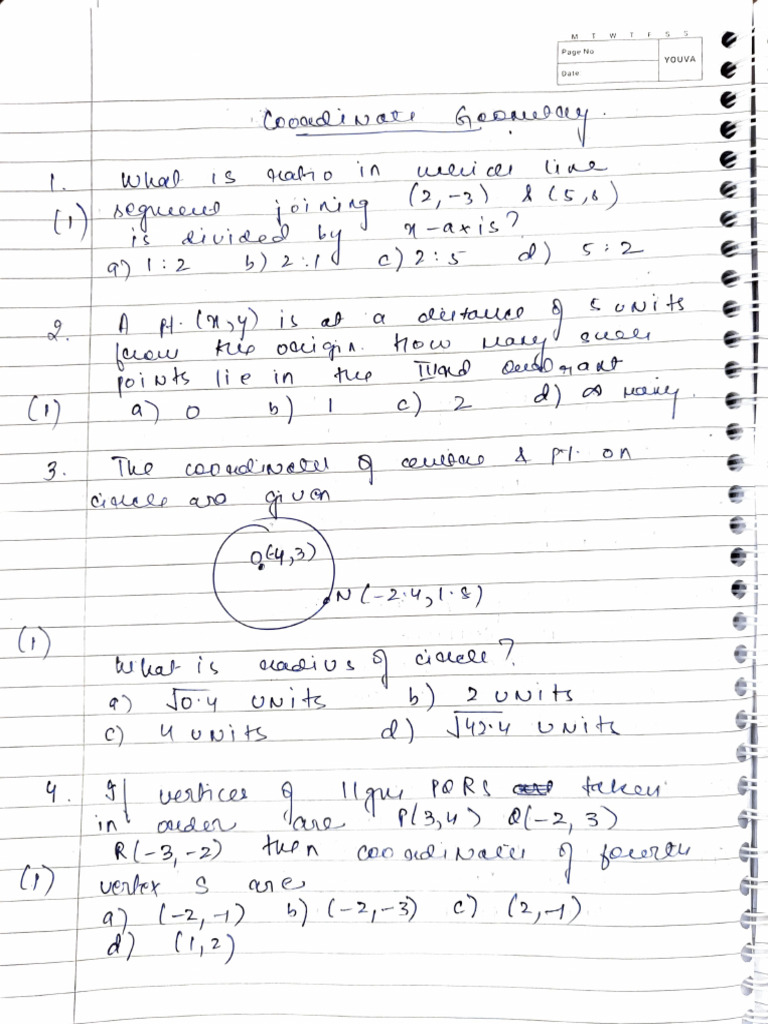 M T W T F S S
Page No
YOUVA
Date
Coordinate Geometry.
1. What is ratio in which line
(1) segment joining (2,-3) & (5,6)
is divided by x-axis?
a) 1:2 b) 2:1 c) 2:5 d) 5:2
2. A pt. (x,y) is at a distance of 5 units
from the origin. How many such
points lie in the IIIrd quadrant
(1) a) 0 b) 1 c) 2 d) ∞ many.
3. The coordinates of centre & pt. on
circle are given
O(-4,3)
N(-2.4,1.8)
(1)
What is radius of circle?
a) √0.4 units b) 2 units
c) 4 units d) √42.4 units
4. If vertices of ||gm PQRS taken
in order are P(3,4) Q(-2,3)
R(-3,-2) then coordinates of fourth
(1) vertex S are
a) (-2,-1) b) (-2,-3) c) (2,-1)
d) (1,2)